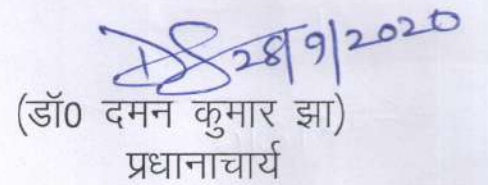 28/9/2020
(डॉ0 दमन कुमार झा)
प्रधानाचार्य